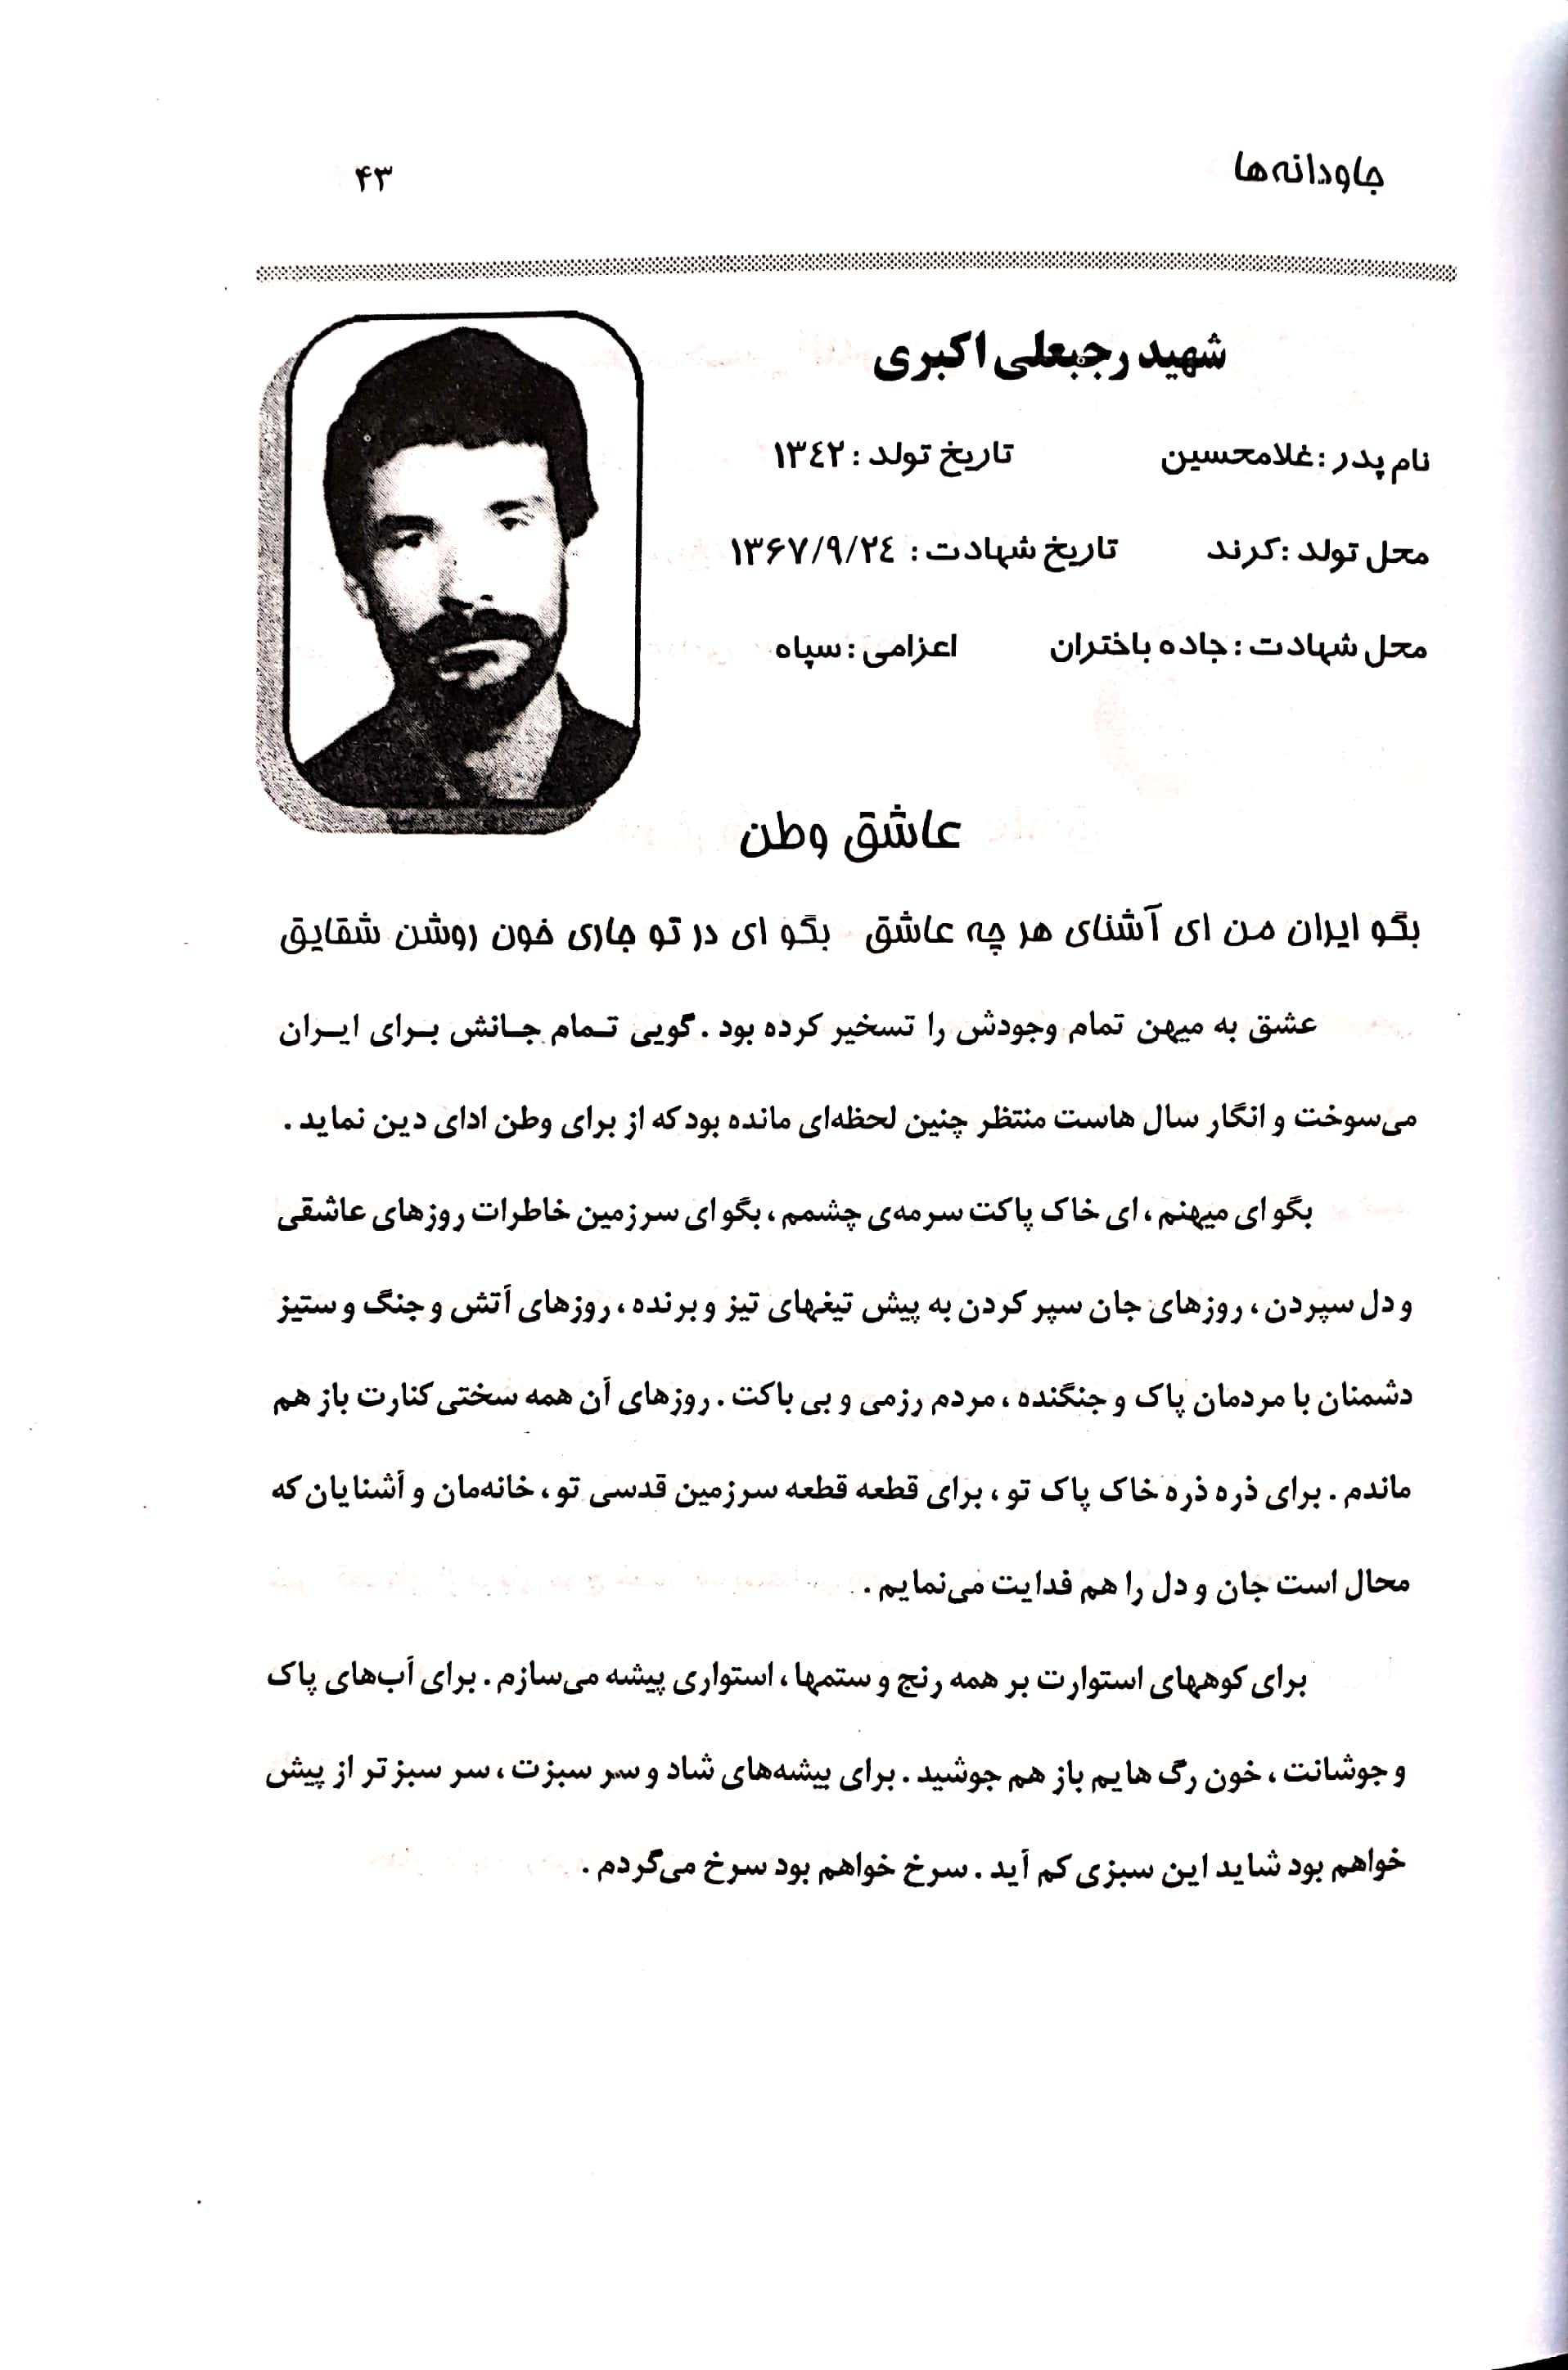 جاودانه‌ها ۴۳
شهید رجبعلی اکبری
نام پدر : غلامحسین تاریخ تولد : ۱۳٤۲
محل تولد : کرند تاریخ شهادت : ۱۳۶۷/۹/۲٤
محل شهادت : جاده باختران اعزامی : سپاه
عاشق وطن
بگو ایران من ای آشنای هر چه عاشق بگو ای در تو جاری خون روشن شقایق
عشق به میهن تمام وجودش را تسخیر کرده بود . گویی تـمام جـانش بـرای ایـران
می‌سوخت و انگار سال هاست منتظر چنین لحظه‌ای مانده بود که از برای وطن ادای دین نماید .
بگو ای میهنم ، ای خاک پاکت سرمه‌ی چشمم ، بگو ای سرزمین خاطرات روزهای عاشقی
و دل سپردن ، روزهای جان سپر کردن به پیش تیغهای تیز و برنده ، روزهای آتش و جنگ و ستیز
دشمنان با مردمان پاک و جنگنده ، مردم رزمی و بی باکت . روزهای آن همه سختی کنارت باز هم
ماندم . برای ذره ذره خاک پاک تو ، برای قطعه قطعه سرزمین قدسی تو ، خانه‌مان و آشنایان که
محال است جان و دل را هم فدایت می‌نمایم .
برای کوههای استوارت بر همه رنج و ستمها ، استواری پیشه می‌سازم . برای آب‌های پاک
و جوشانت ، خون رگ هایم باز هم جوشید . برای بیشه‌های شاد و سر سبزت ، سر سبز تر از پیش
خواهم بود شاید این سبزی کم آید . سرخ خواهم بود سرخ می‌گردم .